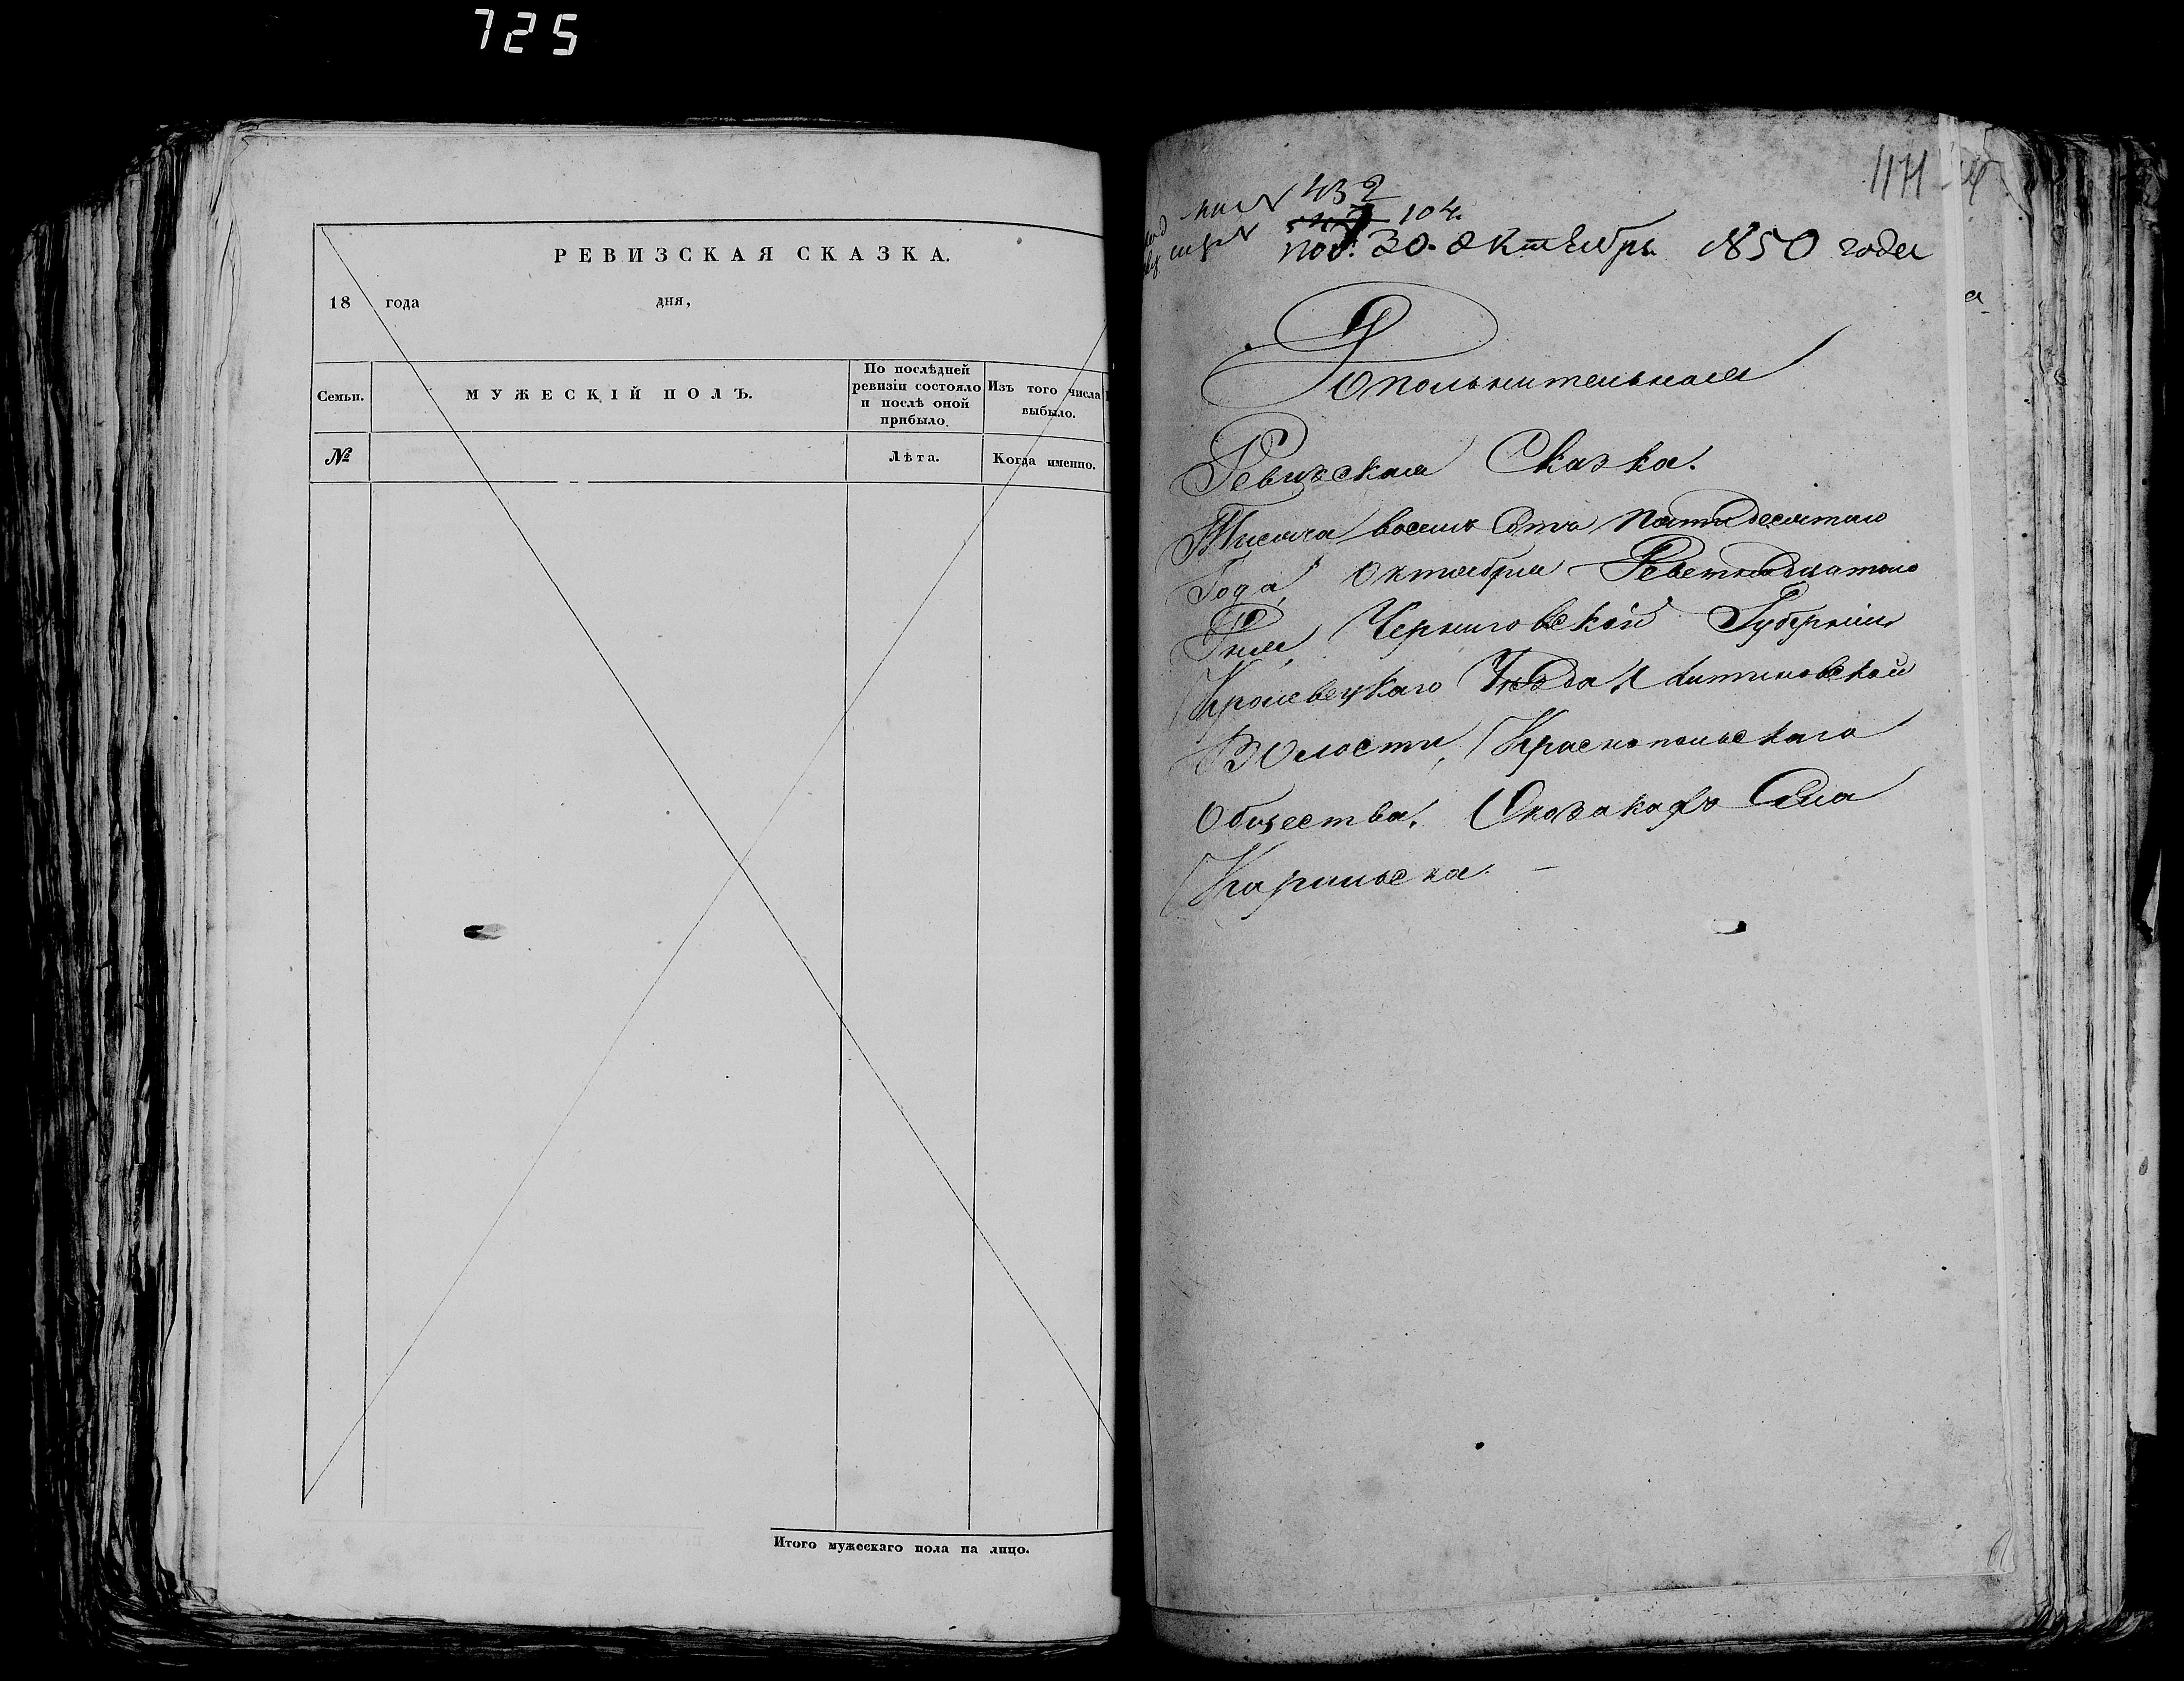 725
РЕВИЗСКАЯ СКАЗКА.
18 года дня,
Семьи.
МУЖЕСКІЙ ПОЛЪ.
По послѣдней ревизіи состояло и послѣ оной прибыло.
Изъ того числа выбыло.
№
Лѣта.
Когда именно.
Итого мужескаго пола на лицо.
1171
432
104.
под. 30. Октебря 1850 года
Дополнительная
Ревизская Сказка.
Тисяча восемъ Сотъ Пятидесятаго
Года, Октября Деветнадцатого
Дня, Черниговской Губерніи
Кролевецкаго Уѣзда
Волости, Краснопольскаго
Общества, О козакахъ Села
Карильска. —